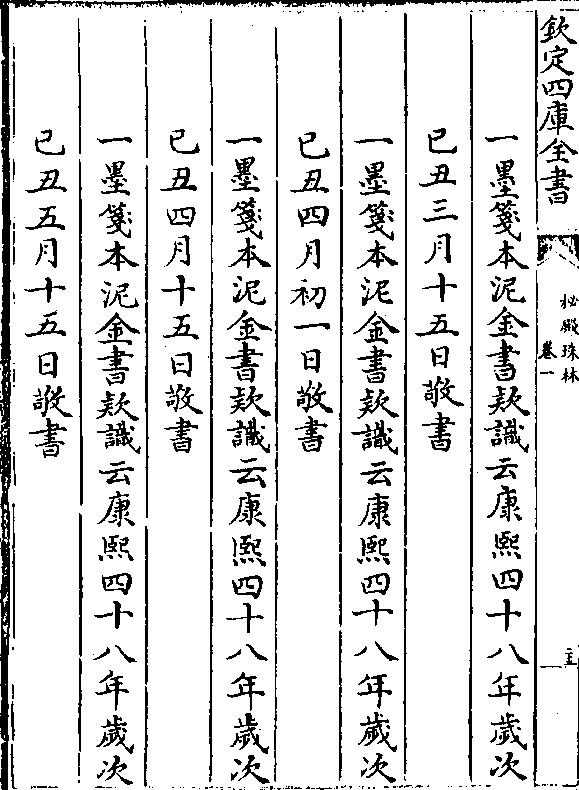 欽定四庫全書
秘殿珠林
卷一
一墨箋本泥金書款識云康熙四十八年歲次
己丑三月十五日敬書
一墨箋本泥金書款識云康熙四十八年歲次
己丑四月初一日敬書
一墨箋本泥金書款識云康熙四十八年歲次
己丑四月十五日敬書
一墨箋本泥金書款識云康熙四十八年歲次
己丑五月十五日敬書